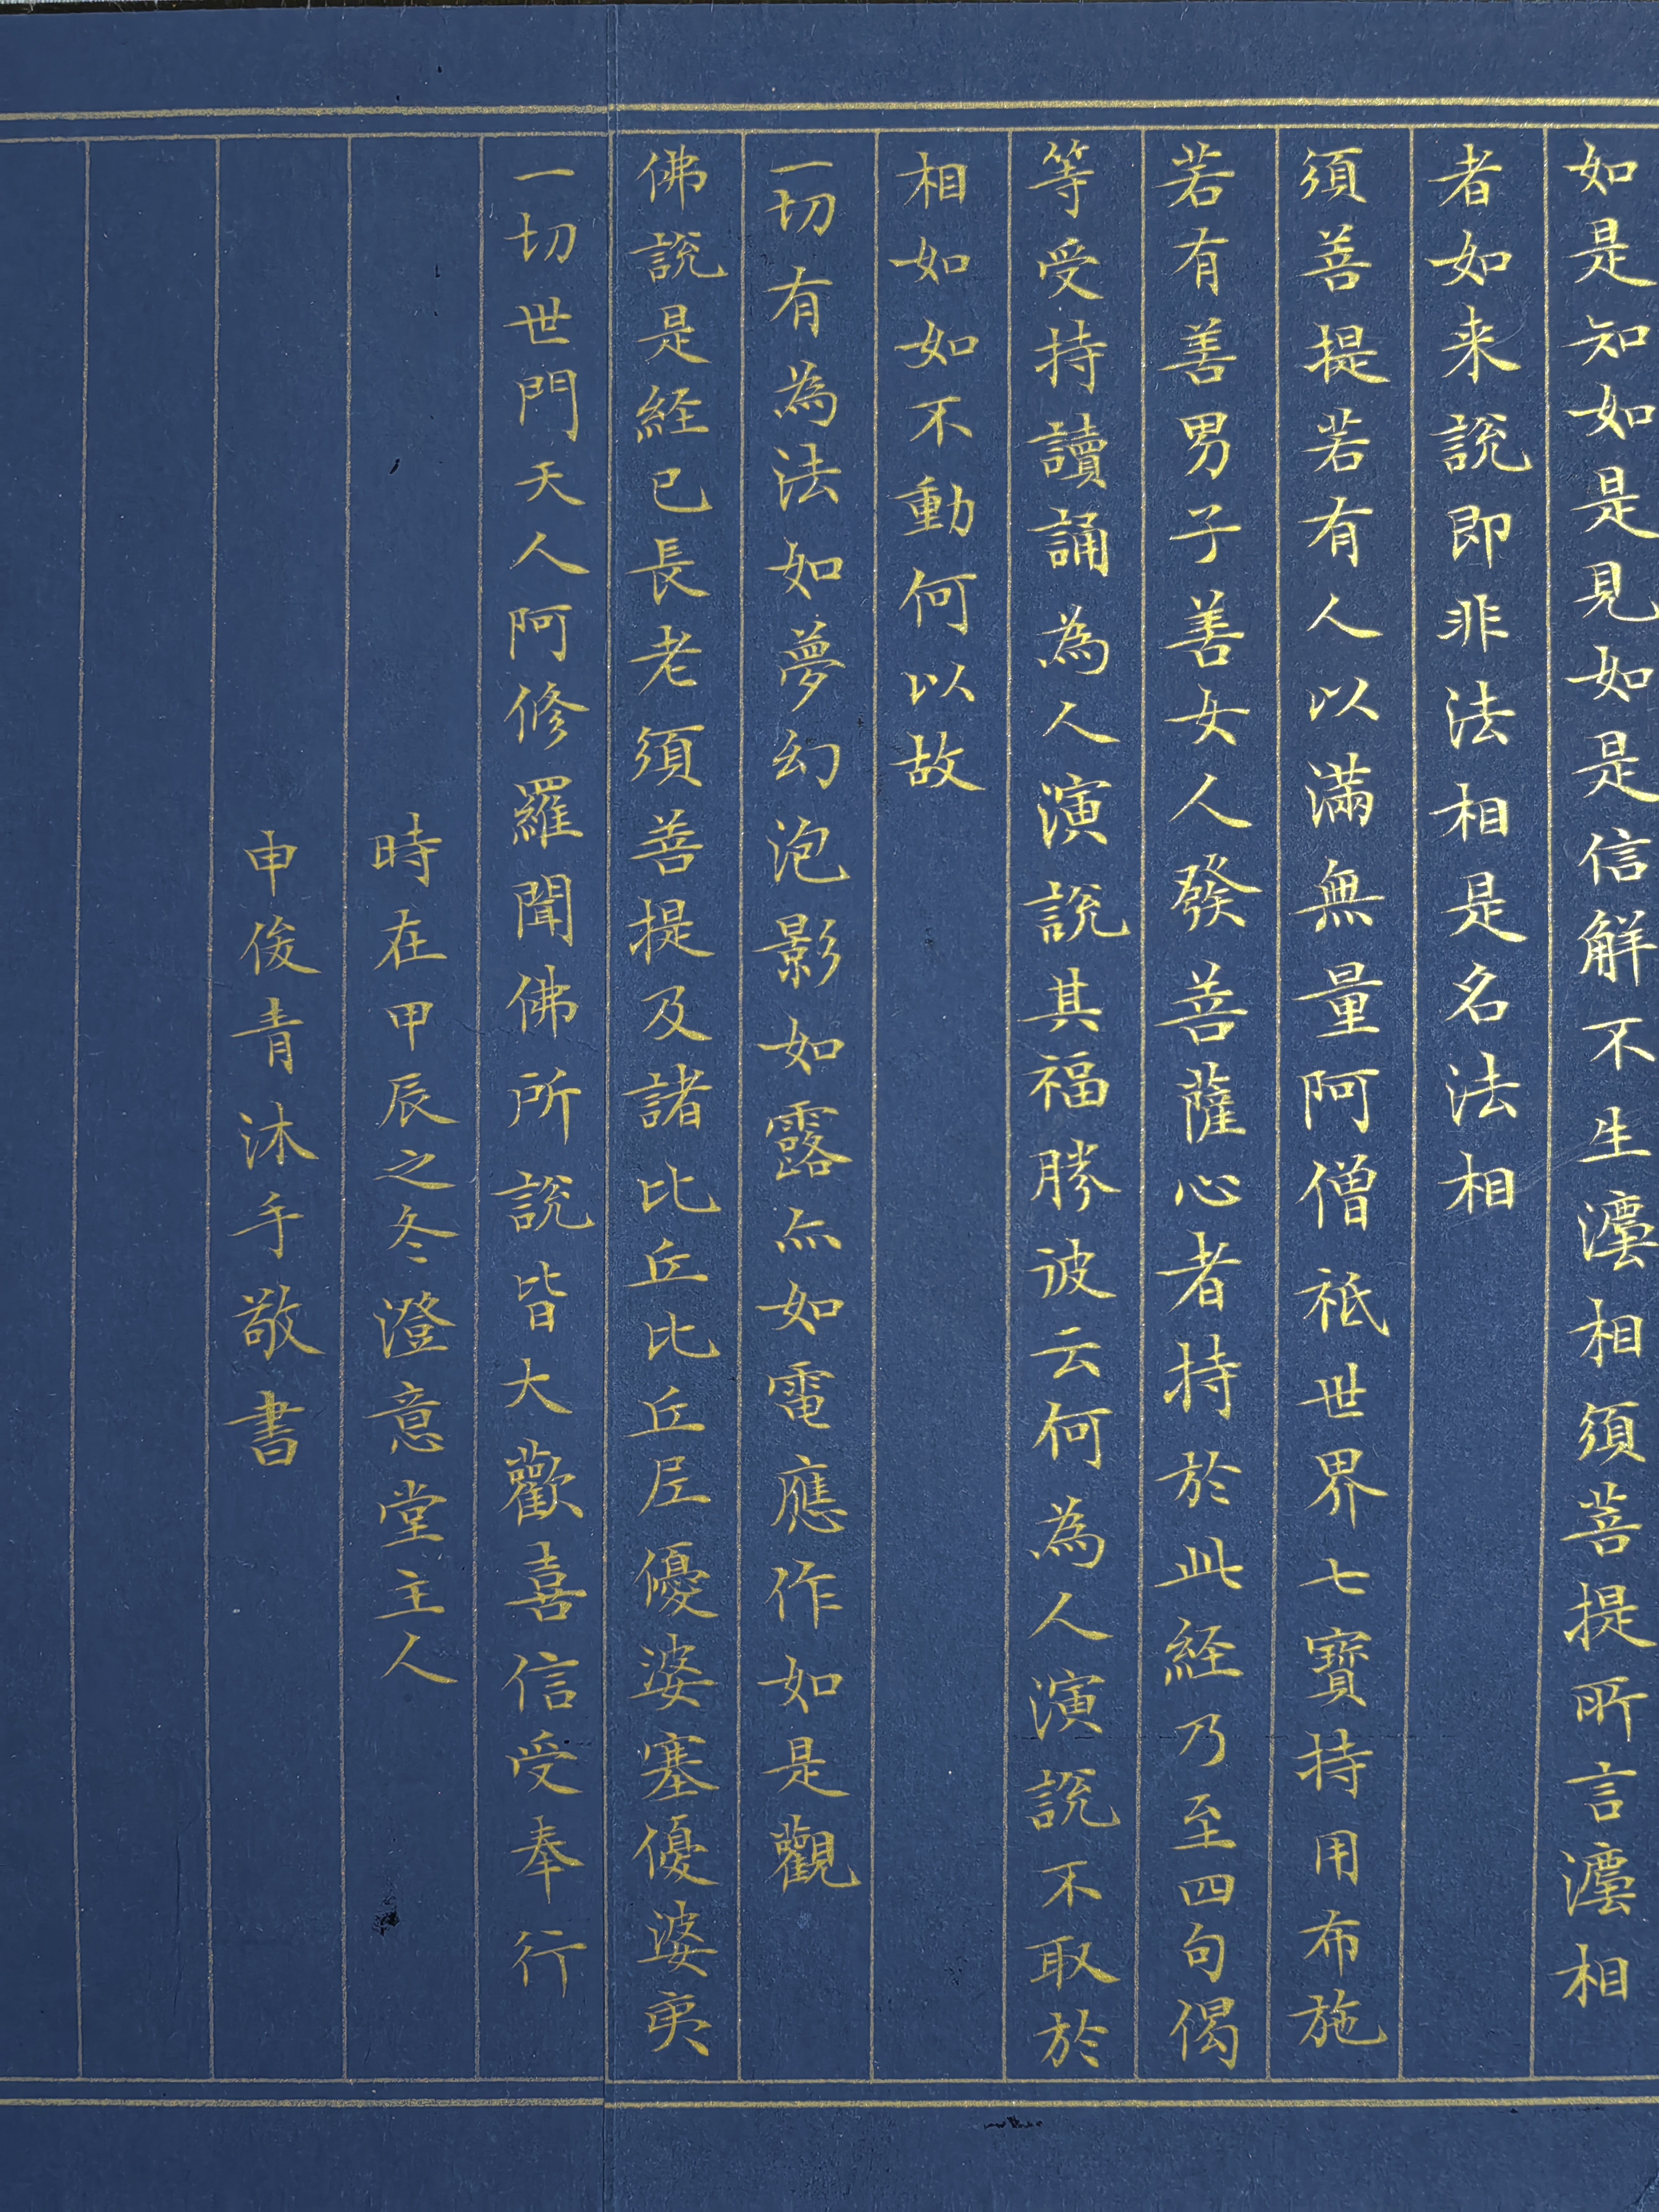 如是知如是見如是信解不生灋相須菩提所言灋相
者如来説即非法相是名法相
須善提若有人以滿無量阿僧祇世界七寶持用布施
若有善男子善女人發菩薩心者持於此経乃至四句偈
等受持讀誦為人演説其福勝彼云何為人演説不取於
相如如不動何以故
一切有為法如夢幻泡影如露亦如電應作如是觀
佛説是経已長老須善提及諸比丘比丘尼優婆塞優婆夷
一切世門天人阿修羅聞佛所説皆大歡喜信受奉行
時在甲辰之冬澄意堂主人
申俊青沐手敬書